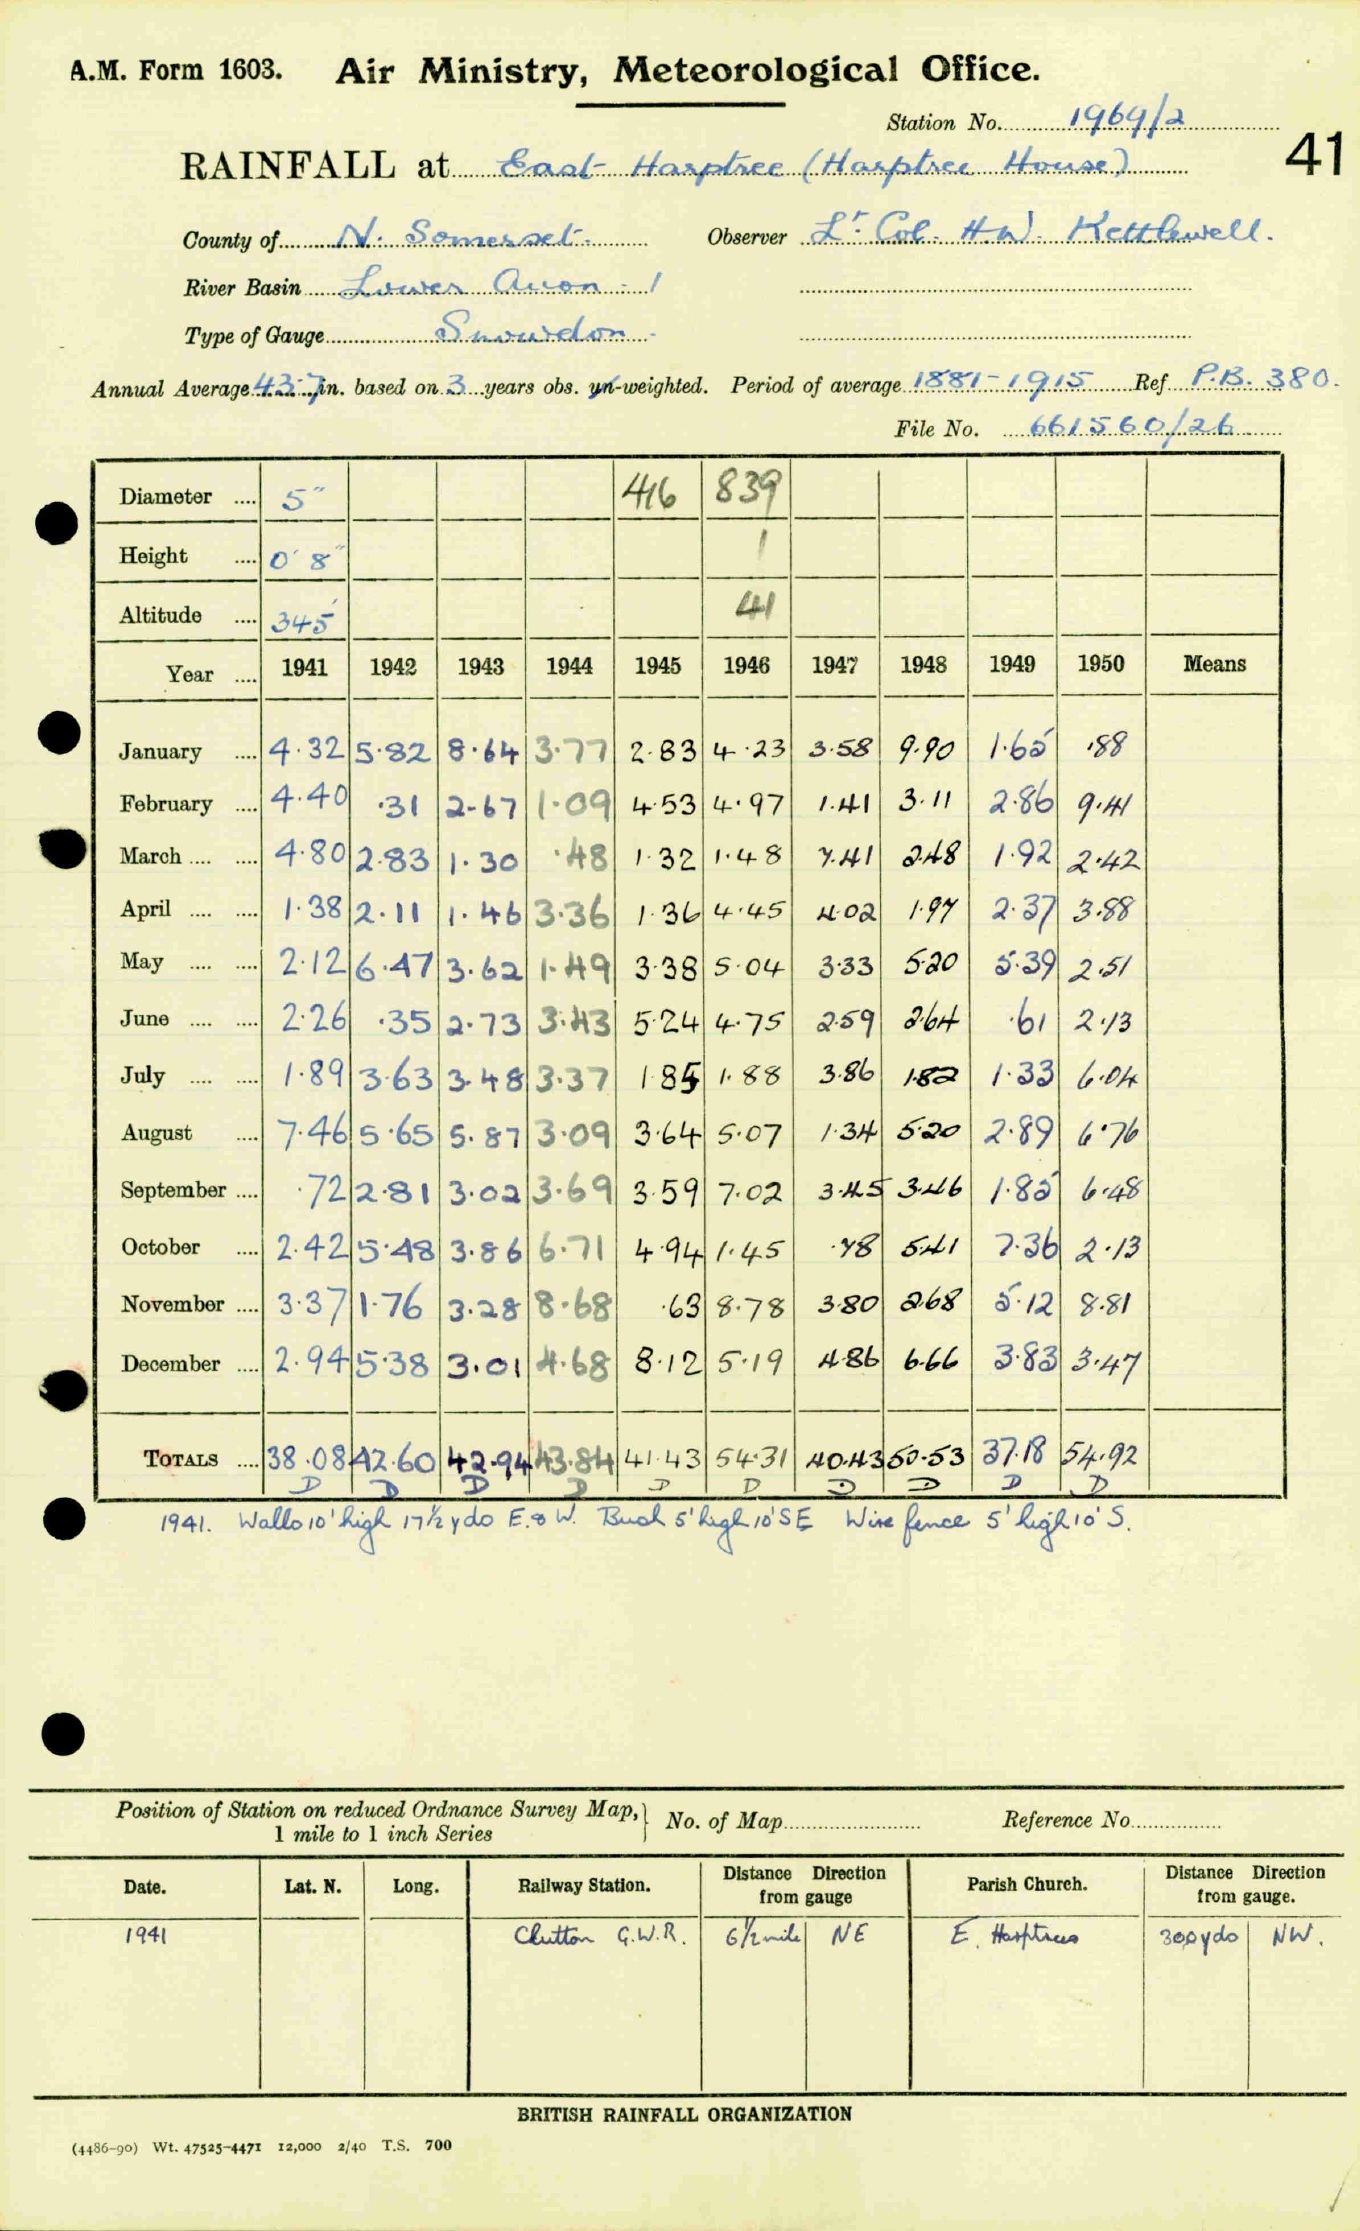 A.M. Form 1603. Air Ministry, Meteorological Office.
Station No. 1969/2
41
RAINFALL at East Harptree (Harptree House)
County of N. Somerset. Observer Lt. Col. H.W. Kettlewell.
River Basin Lower Avon - 1
Type of Gauge Snowdon.
Annual Average 43.7 in. based on 3 years obs. un-weighted. Period of average 1881-1915 Ref P.B. 380.
File No. 661560/26
Diameter .... 5" 416 839
Height .... 0' 8" 1
Altitude .... 345' 41
Year .... 1941 1942 1943 1944 1945 1946 1947 1948 1949 1950 Means
January .... 4.32 5.82 8.64 3.77 2.83 4.23 3.58 9.90 1.65 .88
February .... 4.40 .31 2.67 1.09 4.53 4.97 1.41 3.11 2.86 9.41
March .... .... 4.80 2.83 1.30 .48 1.32 1.48 7.41 2.48 1.92 2.42
April .... .... 1.38 2.11 1.46 3.36 1.36 4.45 4.02 1.97 2.37 3.88
May .... .... 2.12 6.47 3.62 1.49 3.38 5.04 3.33 5.20 5.39 2.51
June .... .... 2.26 .35 2.73 3.43 5.24 4.75 2.59 2.64 .61 2.13
July .... .... 1.89 3.63 3.48 3.37 1.85 1.88 3.86 1.82 1.33 6.04
August .... 7.46 5.65 5.87 3.09 3.64 5.07 1.34 5.20 2.89 6.76
September .... .72 2.81 3.02 3.69 3.59 7.02 3.45 3.46 1.85 6.48
October .... 2.42 5.48 3.86 6.71 4.94 1.45 .78 5.41 7.36 2.13
November .... 3.37 1.76 3.28 8.68 .63 8.78 3.80 2.68 5.12 8.81
December .... 2.94 5.38 3.01 4.68 8.12 5.19 4.86 6.66 3.83 3.47
TOTALS .... 38.08 42.60 42.94 43.84 41.43 54.31 40.43 50.53 37.18 54.92
D D D D D D D D D D
1941. Walls 10' high 17½ yds E. & W. Bush 5' high 10' SE Wire fence 5' high 10' S.
Position of Station on reduced Ordnance Survey Map, } No. of Map Reference No.
1 mile to 1 inch Series
Date. Lat. N. Long. Railway Station. Distance Direction from gauge Parish Church. Distance Direction from gauge.
1941 Clutton G.W.R. 6½ mile NE E. Harptree 300 yds NW.
BRITISH RAINFALL ORGANIZATION
(4486-90) Wt. 47525-4471 12,000 2/40 T.S. 700